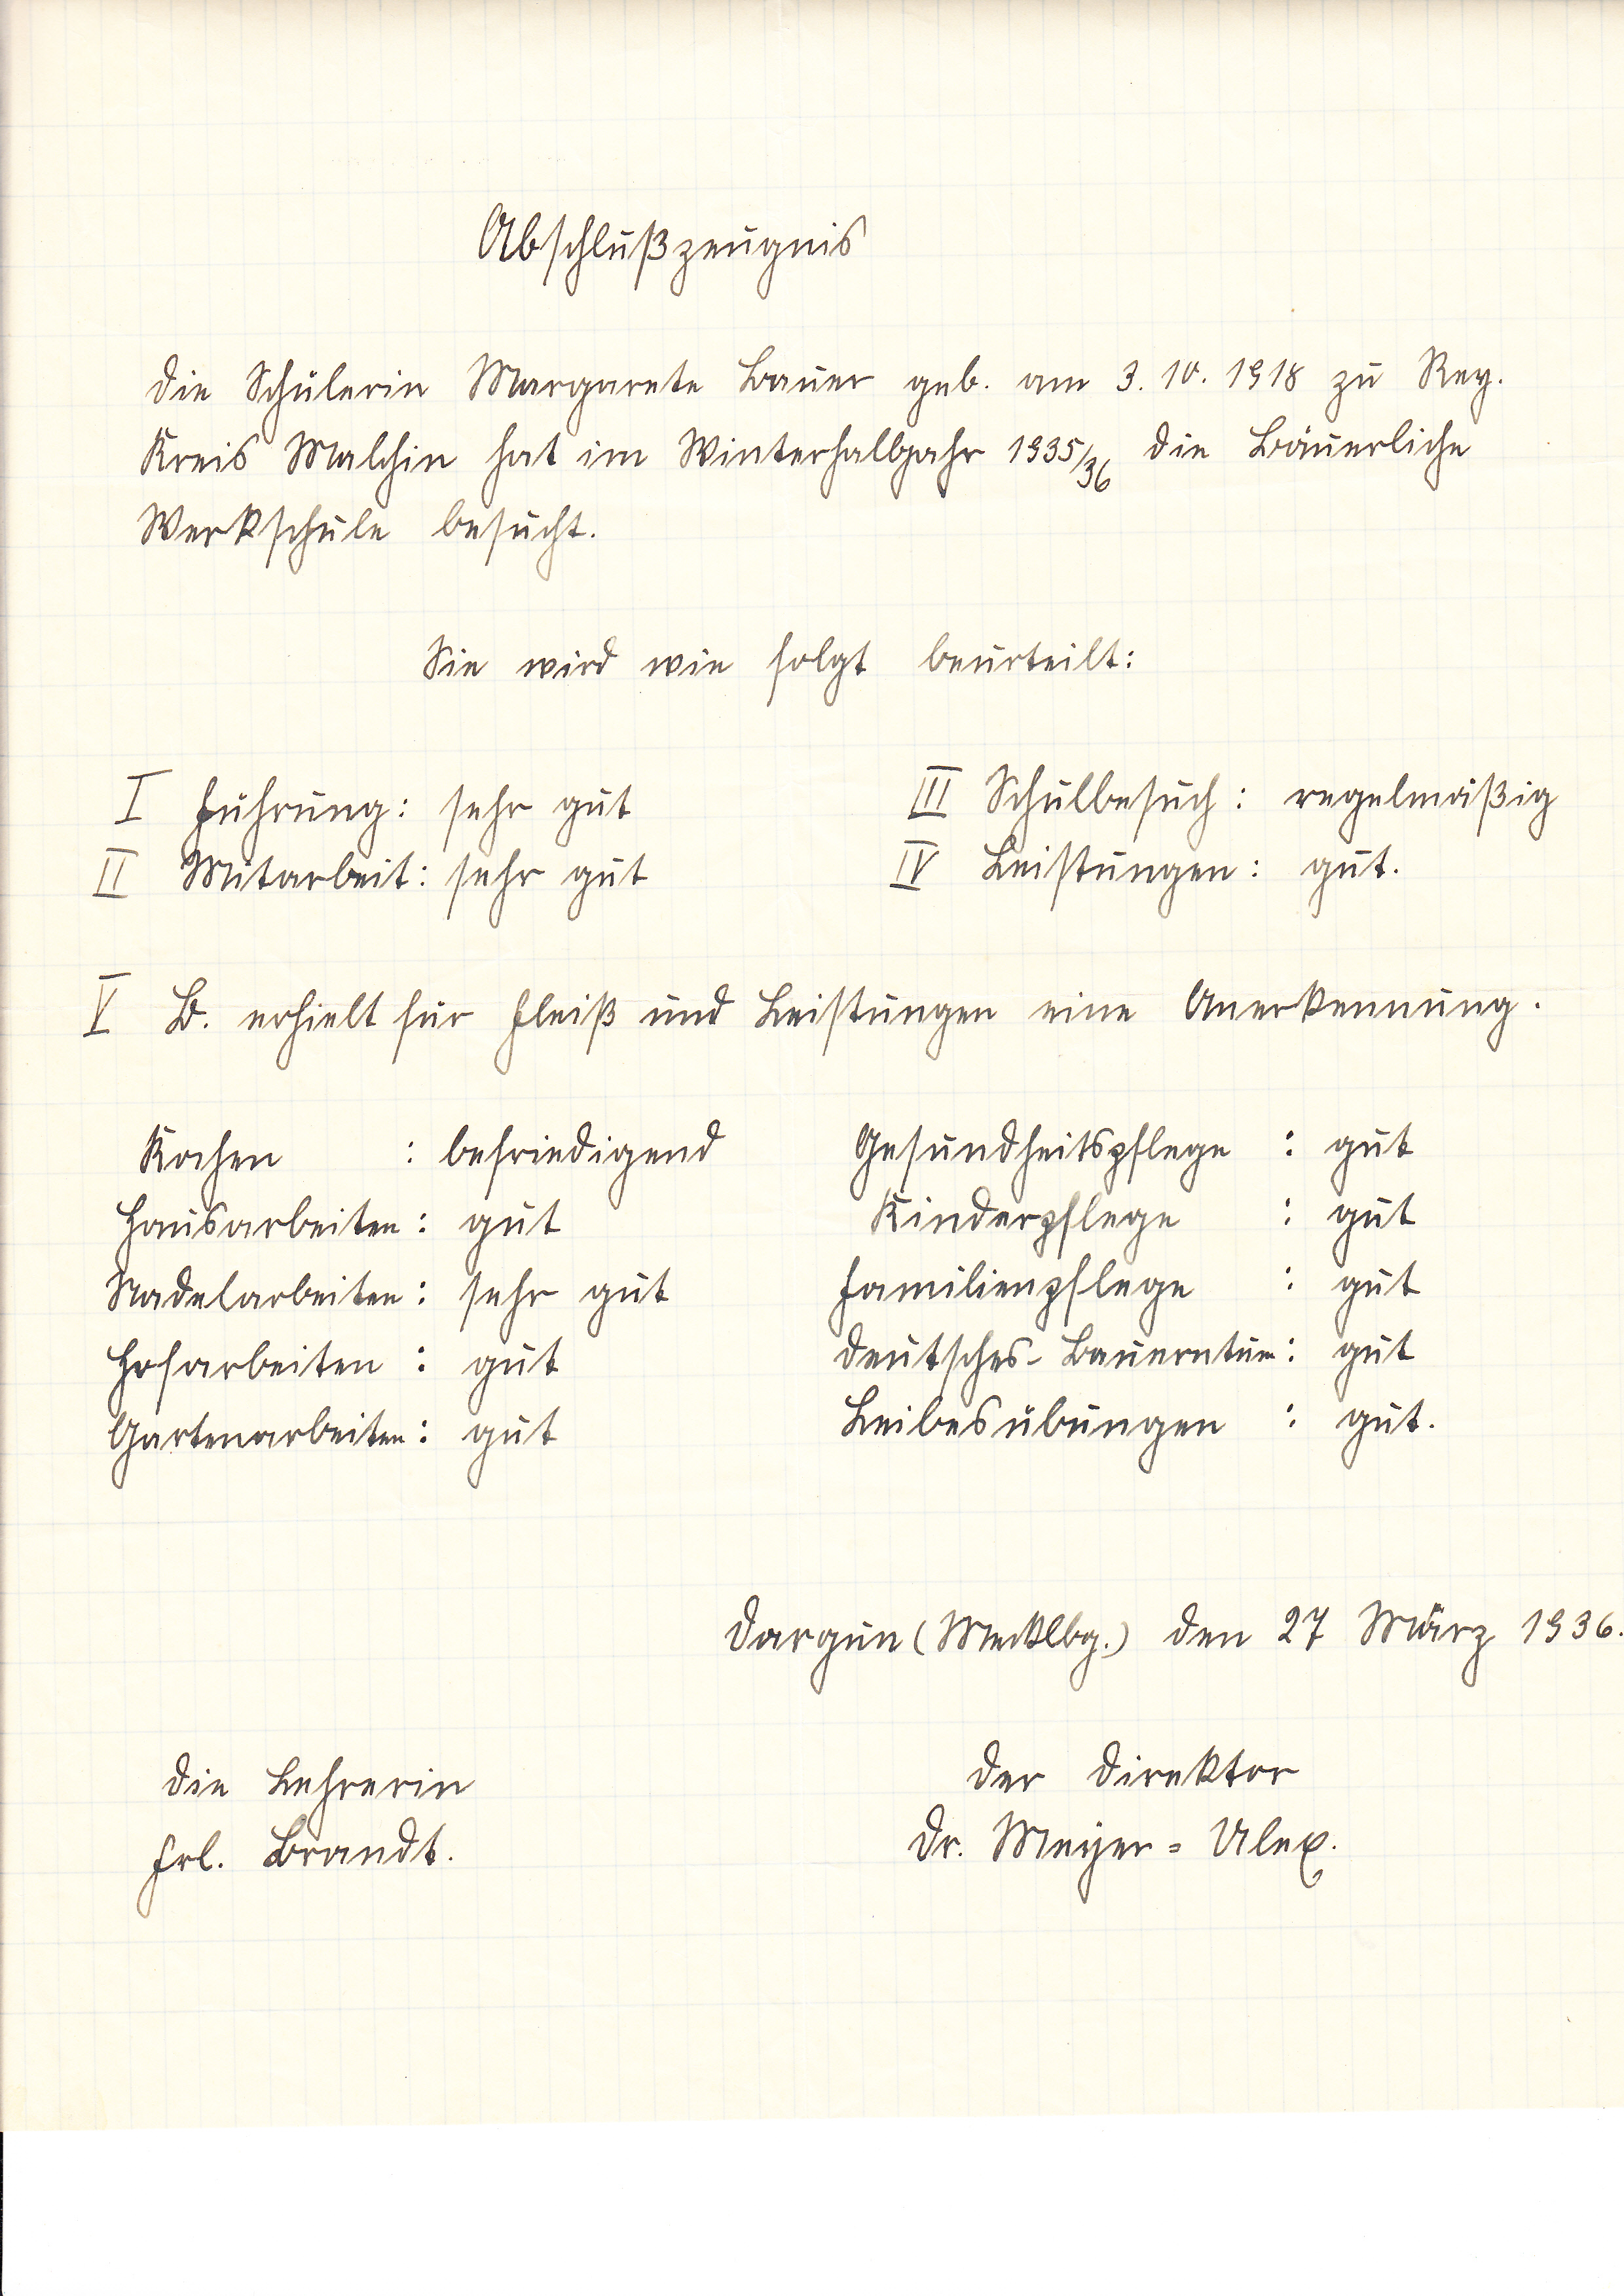 Abschlußzeugnis
Die Schülerin Margarete Bauer geb. am 3. 10. 1918 zu Rey.
Kreis Malchin hat im Winterhalbjahr 1935/36 die Bäuerliche
Werkschule besucht.
Sie wird wie folgt beurteilt:
I Führung: sehr gut III Schulbesuch: regelmäßig
II Mitarbeit: sehr gut IV Leistungen: gut.
V B. erhielt für Fleiß und Leistungen eine Anerkennung.
Kochen : befriedigend Gesundheitspflege : gut
Hausarbeiten: gut Kinderpflege : gut
Nadelarbeiten: sehr gut Familienpflege : gut
Hofarbeiten : gut Deutsches-Bauerntum: gut
Gartenarbeiten: gut Leibesübungen : gut.
Dargun (Mecklbg.) den 27 März 1936.
Die Lehrerin Der Direktor
Frl. Brandt. Dr. Meyer = Ulex.